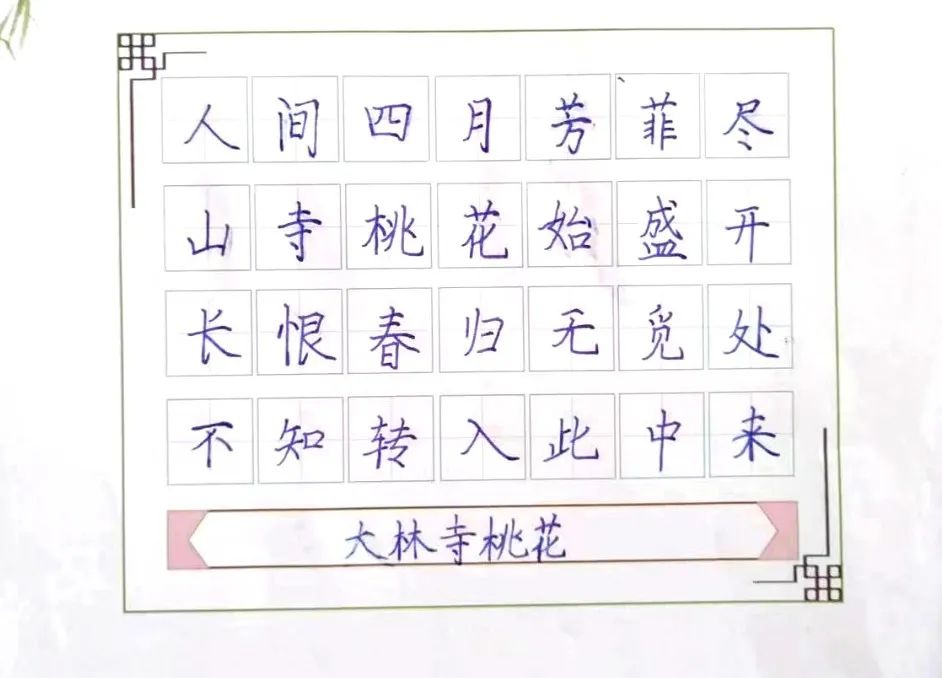 人间四月芳菲尽
山寺桃花始盛开
长恨春归无觅处
不知转入此中来
大林寺桃花